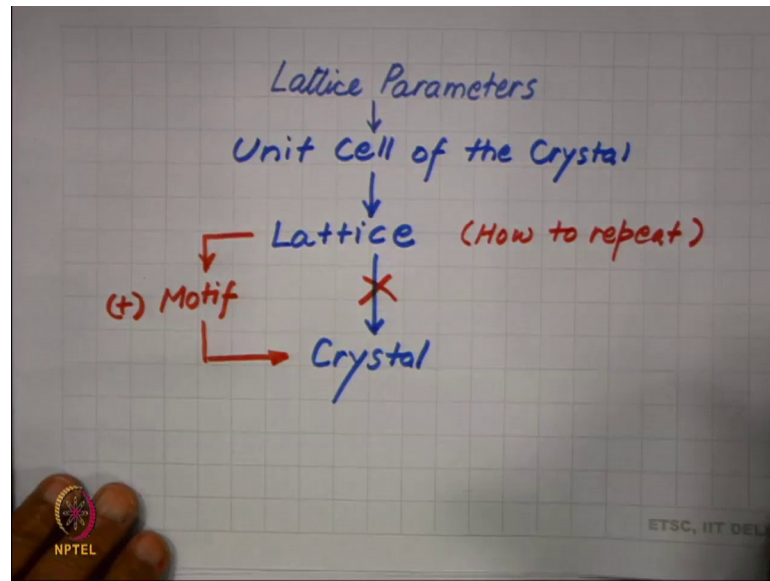 Lattice Parameters
Unit Cell of the Crystal
Lattice (How to repeat)
(+) Motif
Crystal
ETSC, IIT DEL
NPTEL